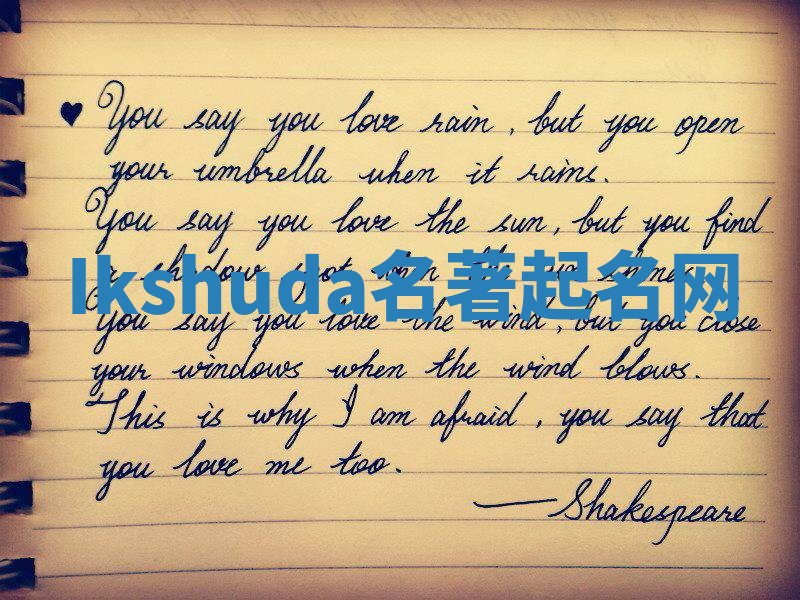 ♥ You say you love rain, but you open
your umbrella when it rains.
You say you love the sun, but you find
a shadow spot when the sun shines.
Ikshuda名著起名网
You say you love the wind, but you close
your windows when the wind blows.
This is why I am afraid, you say that
you love me too.
—Shakespeare